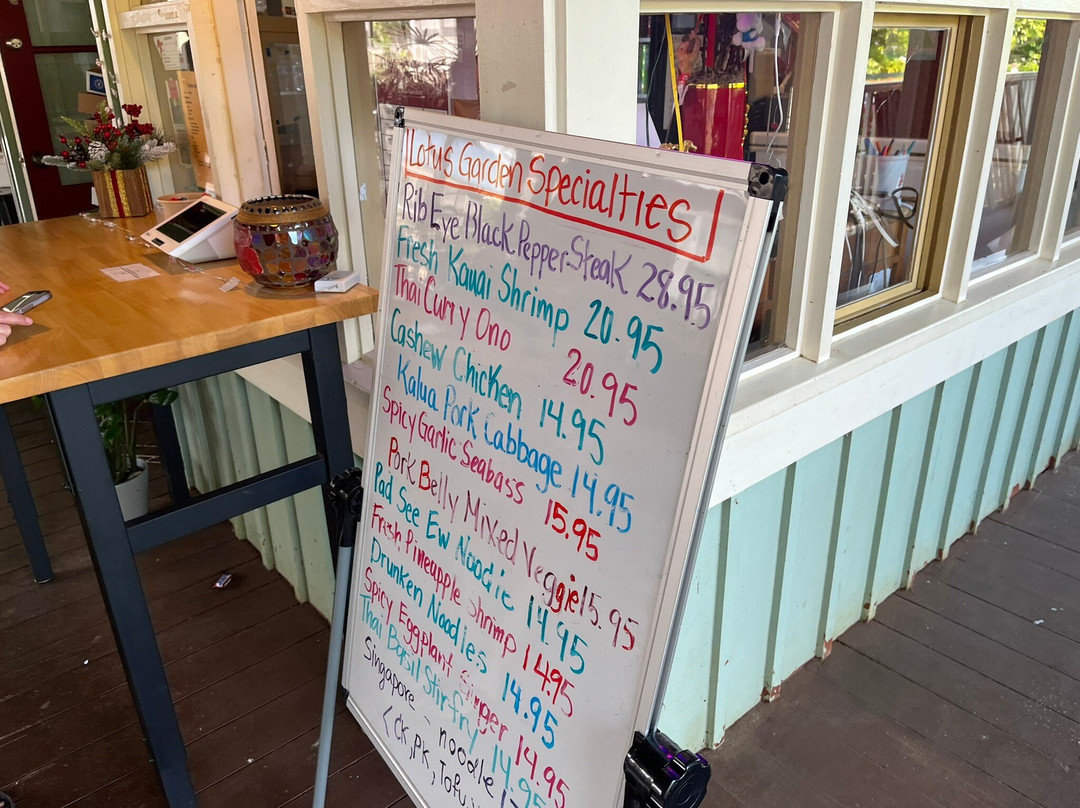 Lotus Garden Specialties
Rib Eye Black Pepper Steak 28.95
Fresh Kauai Shrimp 20.95
Thai Curry Ono 20.95
Cashew Chicken 14.95
Kalua Pork Cabbage 14.95
Spicy Garlic Seabass 15.95
Pork Belly Mixed Veggie 15.95
Pad See Ew Noodle 14.95
Fresh Pineapple Shrimp 14.95
Drunken Noodles 14.95
Spicy Eggplant Ginger 14.95
Thai Basil Stirfry 14.95
Singapore - noodle
(CK, PK, Tofu,